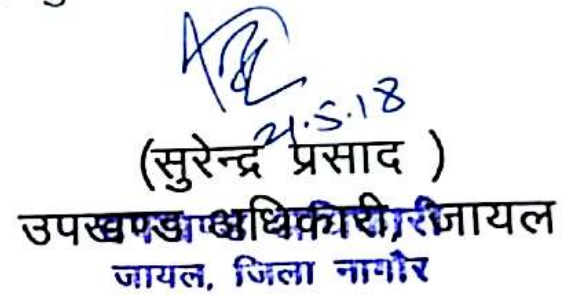 21.5.18
(सुरेन्द्र प्रसाद )
उपखण्ड अधिकारी, जायल
जायल, जिला नागौर